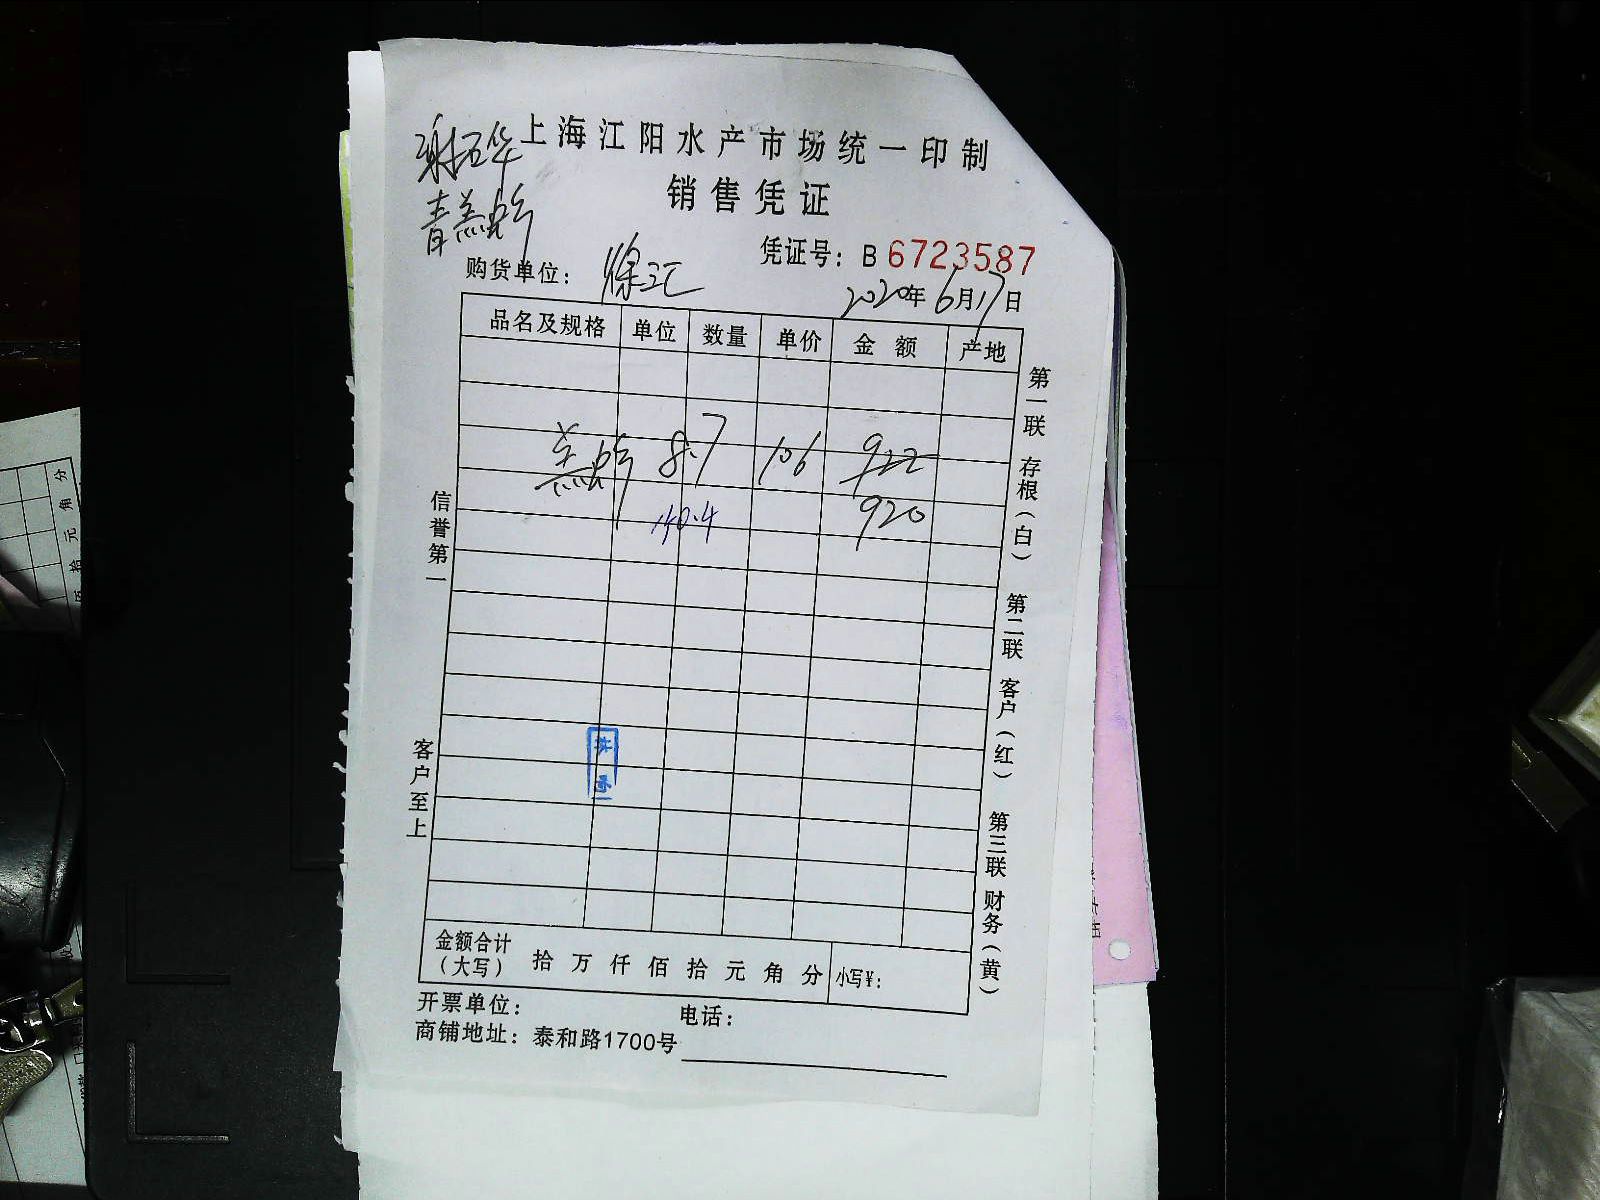 上海江阳水产市场统一印制
销售凭证
凭证号：B 6723587
购货单位：徐汇
2020年6月17日
品名及规格 单位 数量 单价 金额 产地
8.7 106 922
140.4 920
信誉第一
客户至上
第一联 存根（白）
第二联 客户（红）
第三联 财务（黄）
金额合计（大写） 拾 万 仟 佰 拾 元 角 分 小写￥：
开票单位： 电话：
商铺地址：泰和路1700号